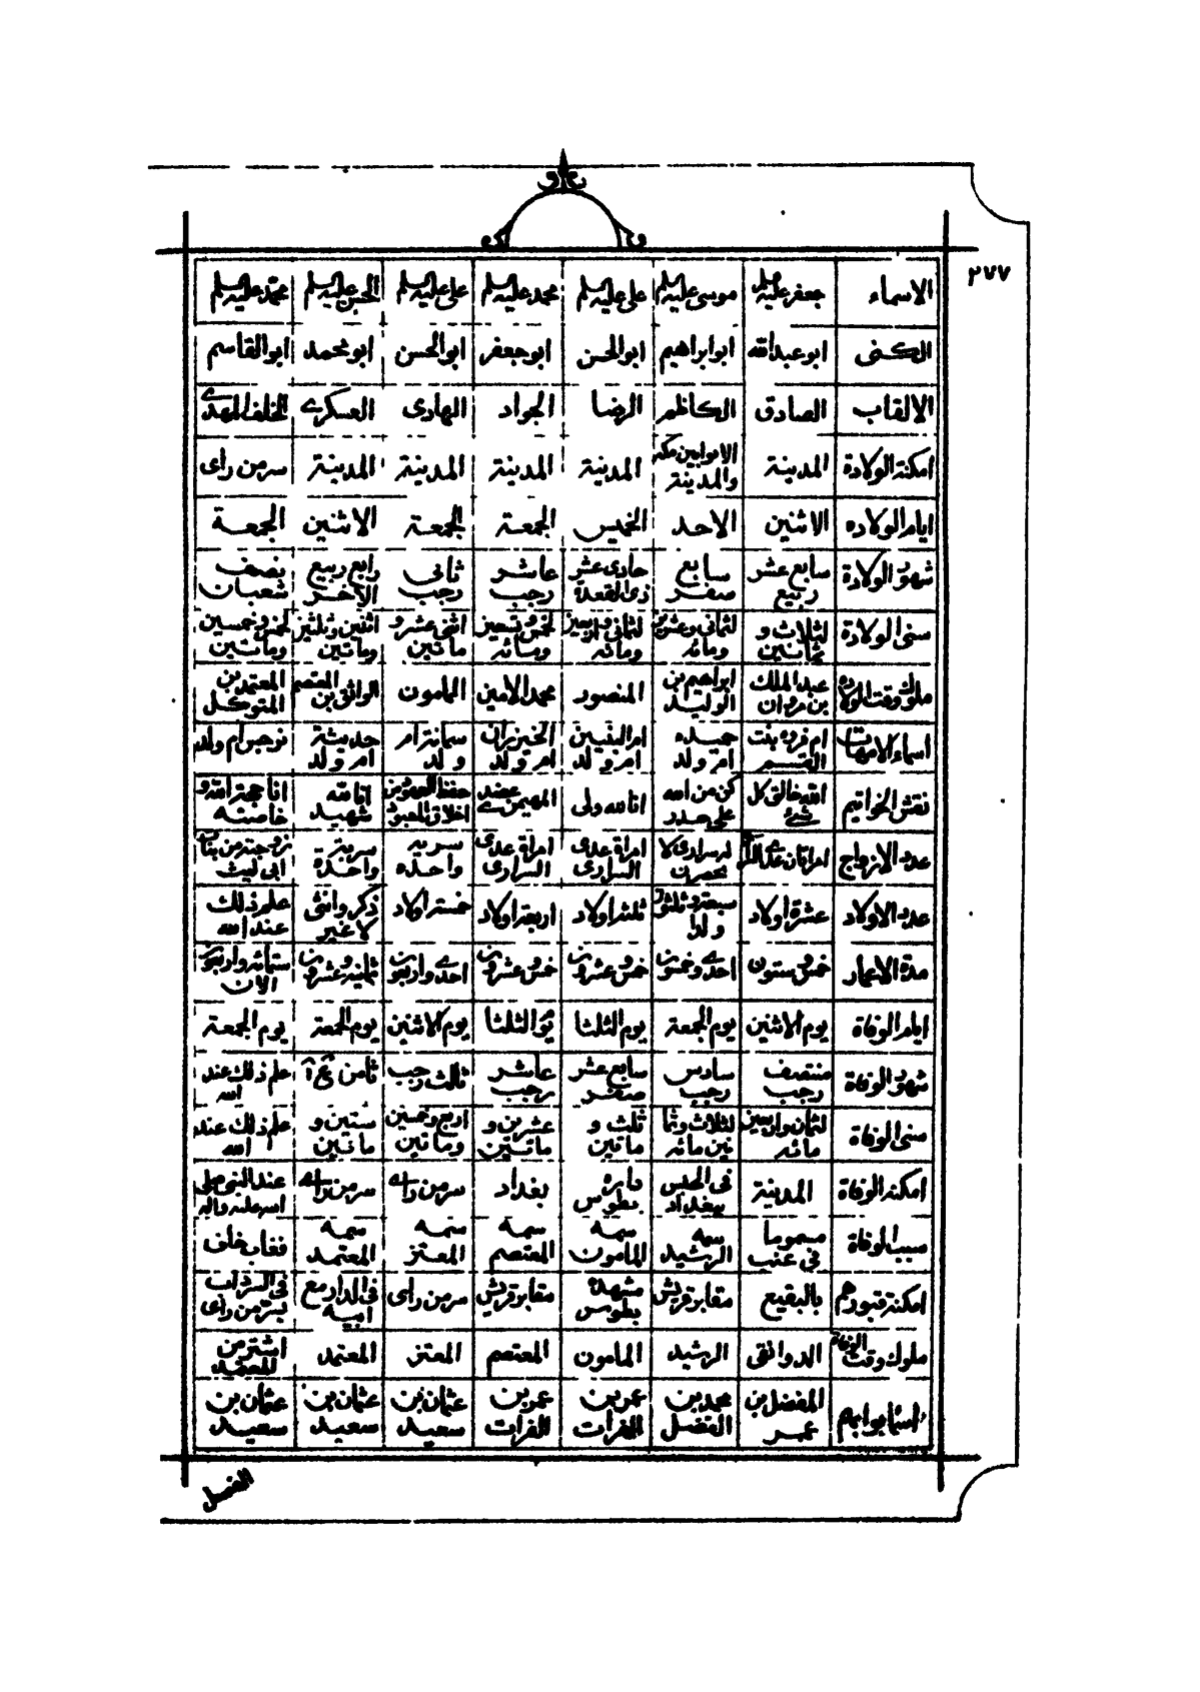 ٢٧٧
الاسماء جعفر عليه السلم موسى عليه السلم على عليه السلم محمد عليه السلم على عليه السلم الحسن عليه السلم محمد عليه السلم
الكنى ابو عبدالله ابو ابراهيم ابو الحسن ابو جعفر ابو الحسن ابو محمد ابو القاسم
الالقاب الصادق الكاظم الرضا الجواد الهادى العسكرى الخلف المهدى
امكنة الولادة المدينة الابوا بين مكه والمدينة المدينة المدينة المدينة المدينة سر من راى
ايام الولاده الاثنين الاحد الخميس الجمعة الجمعة الاثنين الجمعة
شهور الولادة سابع عشر ربيع سابع صفر حادى عشر ذى القعدة عاشر رجب ثانى رجب رابع ربيع الآخر نصف شعبان
سنى الولادة لثلاث و ثمانين لثمانى وعشرين ومائه لثمانى واربعين ومائه لخمس وتسعين ومائه اثنى عشر و ماتين اثنين وثلثين وماتين لخمس وخمسين وماتين
ملوك وقت الولادة عبد الملك بن مروان ابراهيم بن الوليد المنصور محمد الامين المامون الواثق بن المعتصم المعتمد بن المتوكل
اسماء الامهات ام فروه بنت القسم حميده ام ولد ام البنين ام ولد الخيزران ام ولد سمانة ام ولد حديثة ام ولد نرجس ام ولد
نقش الخواتيم الله خالق كل شىء كن من الله على حذر انا لله ولى المهيمن عضدى حفظ العهود من اخلاق المعبود انا لله شهيد انا حجة الله و خاصته
عدد الازواج امراتان سرارى لا يحصرن امراة عدى السرارى امراة عدى السرارى سريه واحده سرية واحدة زوجته من بنات ابى ليث
عدد الاولاد عشرة اولاد سبعة وثلثون ولدا ثلثة اولاد اربعة اولاد خمسة اولاد ذكر وانثى لا غير علم ذلك عند الله
مدة الاعمار خمس وستون احدى وخمسون خمس وعشرون خمس وعشرون احدى واربعون ثمانية وعشرون ستمائه واربعون الان
ايام الوفاة يوم الاثنين يوم الجمعة يوم الثلثا يوم الثلثا يوم الاثنين يوم الجمعة يوم الجمعة
شهور الوفاة منتصف رجب سادس رجب سابع عشر صفر عاشر رجب ثالث رجب ثامن علم ذلك عند الله
سنى الوفاة لثمان واربعين مائه لثلاث وثما نين مائه ثلث و ماتين عشرين و ماتين اربع وخمسين وماتين ستين و ماتين علم ذلك عند الله
امكنة الوفاة المدينة فى الحبس ببغداد داره بطوس بغداد سر من راى سر من راى عند النبى صلى الله عليه واله
سبب الوفاة مسموما فى عنب سمه الرشيد سمه المامون سمه المعتصم سمه المعتز سمه المعتمد فغاب خلف
امكنة قبورهم بالبقيع مقابر قريش مشهده بطوس مقابر قريش سر من راى فى الدار مع ابيه فى السرداب بسر من راى
ملوك وقت الوفاة الدوانقى الرشيد المامون المعتصم المعتز المعتمد استتر من المعتمد
اسما بوابهم المفضل بن عمر محمد بن الفضل عمر بن الفرات عمر بن الفرات عثمان بن سعيد عثمان بن سعيد عثمان بن سعيد
الفصل